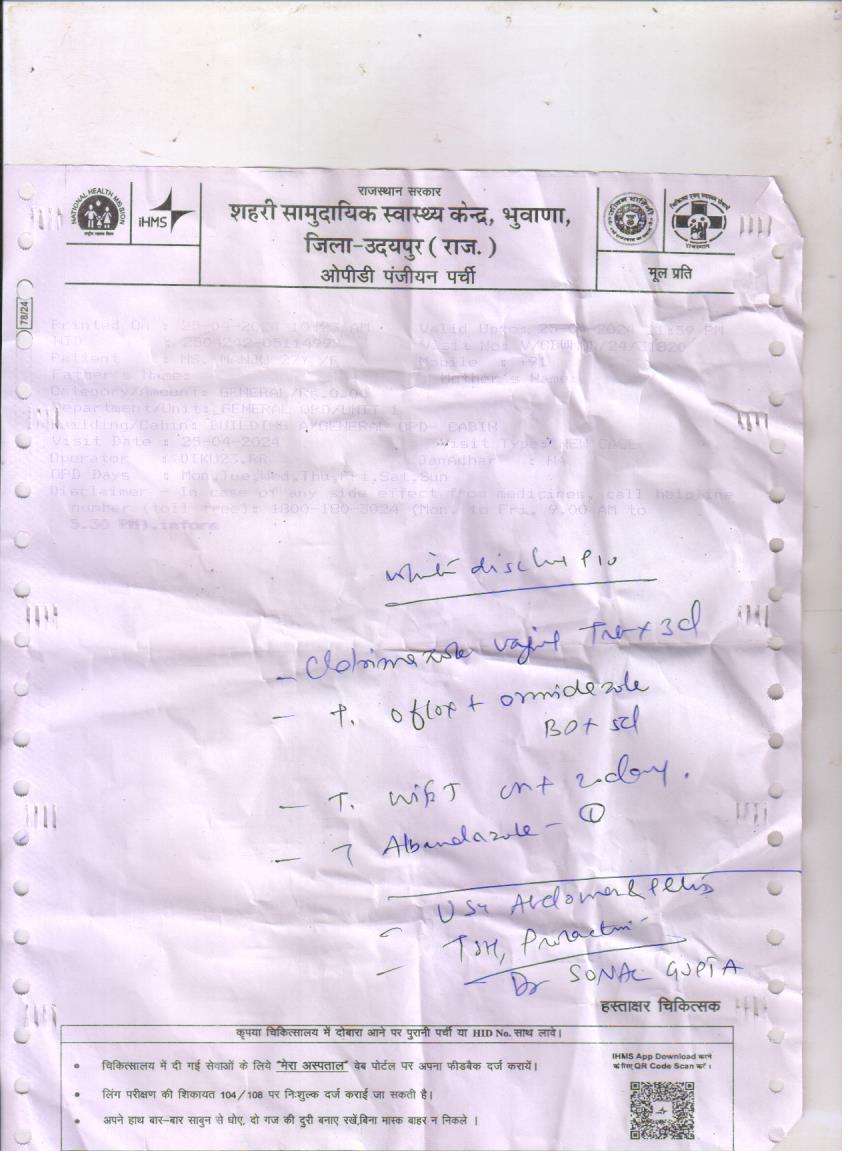 राजस्थान सरकार
शहरी सामुदायिक स्वास्थ्य केन्द्र, भुवाणा,
जिला-उदयपुर ( राज. )
ओपीडी पंजीयन पर्ची
NATIONAL HEALTH MISSION
iHMS
मूल प्रति
78/24
Printed On : 25-04-2024 AM Valid Upto: 25-04-2024 11:59 PM
Visit No:
Patient : MS. 27Y /F Mobile : +91
Father's Name: Mother's Name:
Category/Amount: GENERAL /RS.0.00
Department/Unit: GENERAL OPD/UNIT 1
Building/Cabin: BUILDING A/GENERAL OPD- CABIN
Visit Date : 25-04-2024 Visit Type: NEW CASE
Operator : DIKU23.RR JanAdhar :
OPD Days : Mon,Tue,Wed,Thu,Fri,Sat,Sun
Disclaimer - In case of any side effect from medicines, call helpline
number (toll free): 1800-180-3024 (Mon. to Fri. 9.00 AM to
5.30 PM).
- T. oflox + ornidazole
BD x 5d
- T.
- T Albendazole - ①
USG Abdomen & Pelvis
- TSH, Prolactin
Dr SONAL GUPTA
हस्ताक्षर चिकित्सक
कृपया चिकित्सालय में दोबारा आने पर पुरानी पर्ची या HID No. साथ लावे।
• चिकित्सालय में दी गई सेवाओं के लिये "मेरा अस्पताल" वेब पोर्टल पर अपना फीडबैक दर्ज करायें।
• लिंग परीक्षण की शिकायत 104/108 पर निःशुल्क दर्ज कराई जा सकती है।
• अपने हाथ बार-बार साबुन से धोए, दो गज की दुरी बनाए रखें,बिना मास्क बाहर न निकले ।
IHMS App Download करने
के लिए QR Code Scan करें।